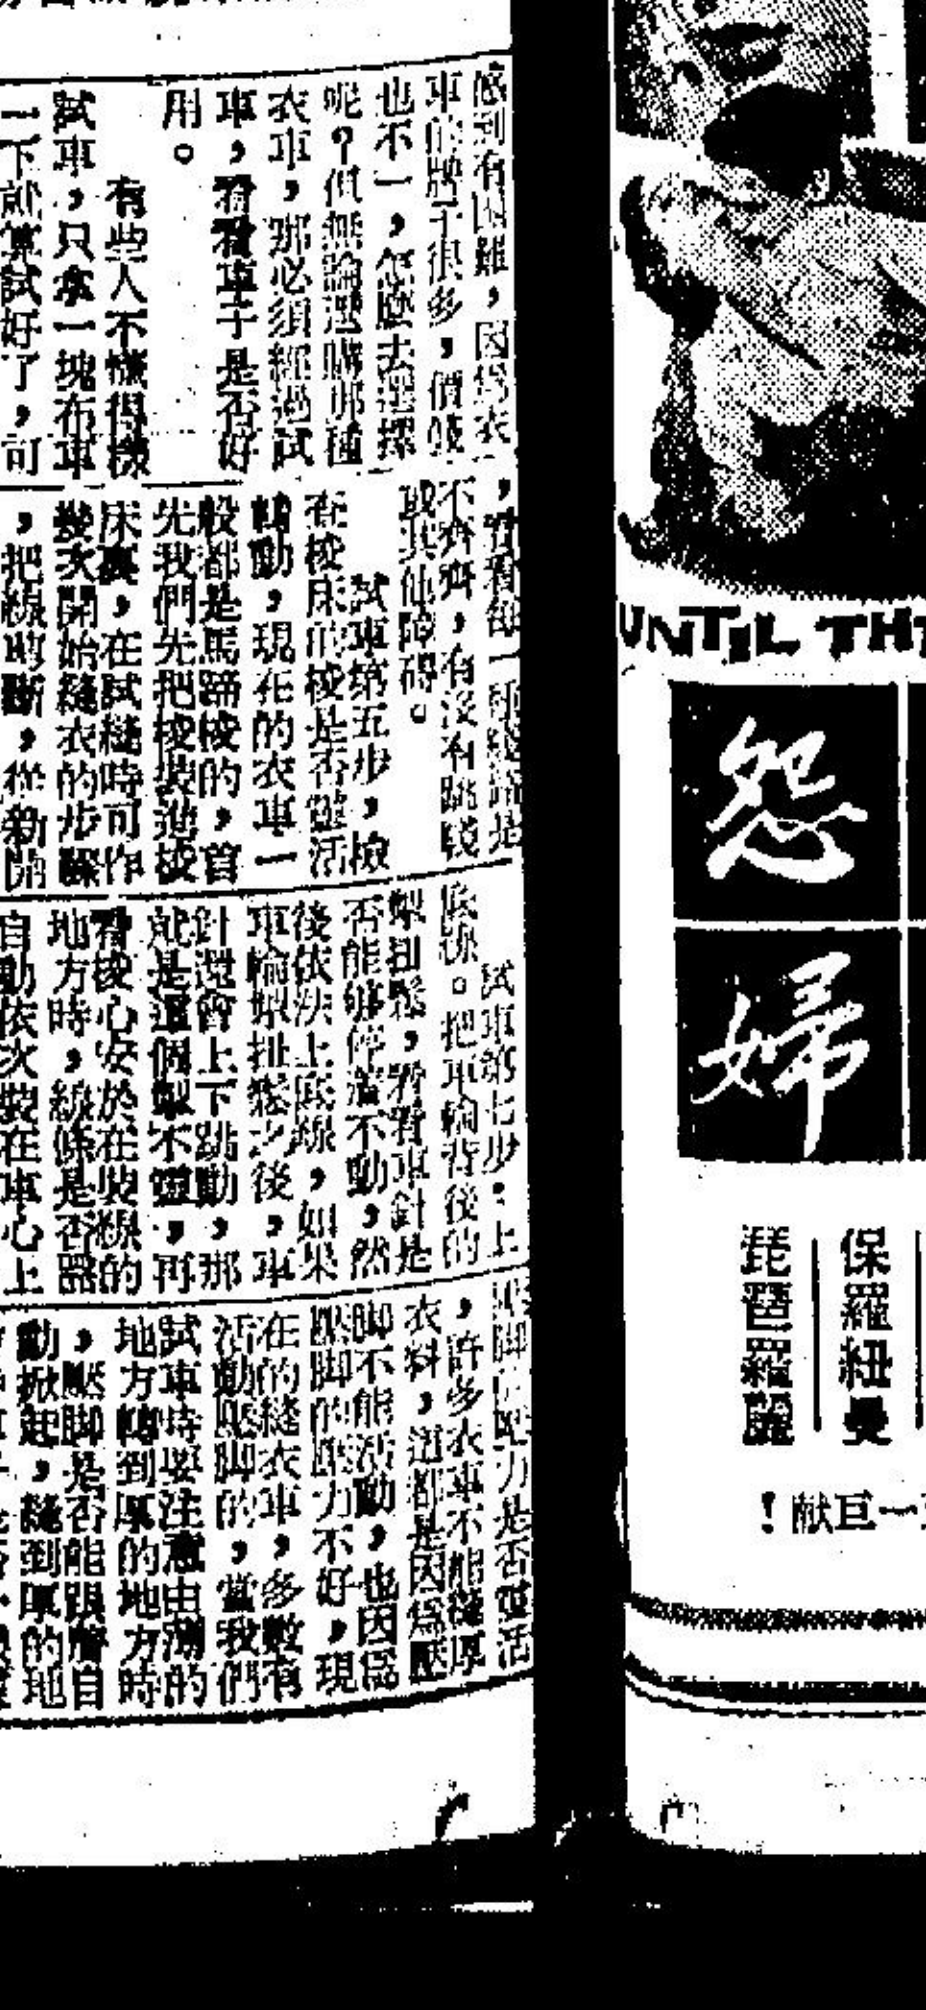 感到有困難，因爲衣
車的牌子很多，價錢
也不一，怎麽去選擇
呢？但無論選購那種
衣車，那必須經過試
車，看看車子是否好
用。
有些人不懂得機
試車，只拿一塊布車
一下就算試好了，可
，看看每一
不齊齊，有沒有跳線
或其他障碍。
試車第五步，檢
查梭床的梭是否靈活
轉動，現在的衣車一
般都是馬蹄梭的，首
先我們先把梭裝進梭
床裏，在試縫時可作
幾次開始縫衣的步驟
，把線剪斷，從新開
試車第七步：上
底線。把車輪背後的
掣扭鬆，看看車針是
否能够停着不動，然
後依法上底線，如果
車輪掣扭鬆之後，車
針還會上下跳動，那
就是這個掣不靈，再
看梭心安於在裝線的
地方時，線條是否器
自動依次裝在車心上
壓脚 力是否靈活
，許多衣車不能縫厚
衣料，這都是因爲壓
脚不能活動，也因爲
壓脚的壓力不好，現
在的縫衣車，多數有
活動壓脚的，當我們
試車時要注意由薄的
地方轉到厚的地方時
，壓脚是否能跟着自
動掀起，縫到厚的地
UNTIL THE
怨
婦
保羅紐曼
琵琶羅麗
！献巨一